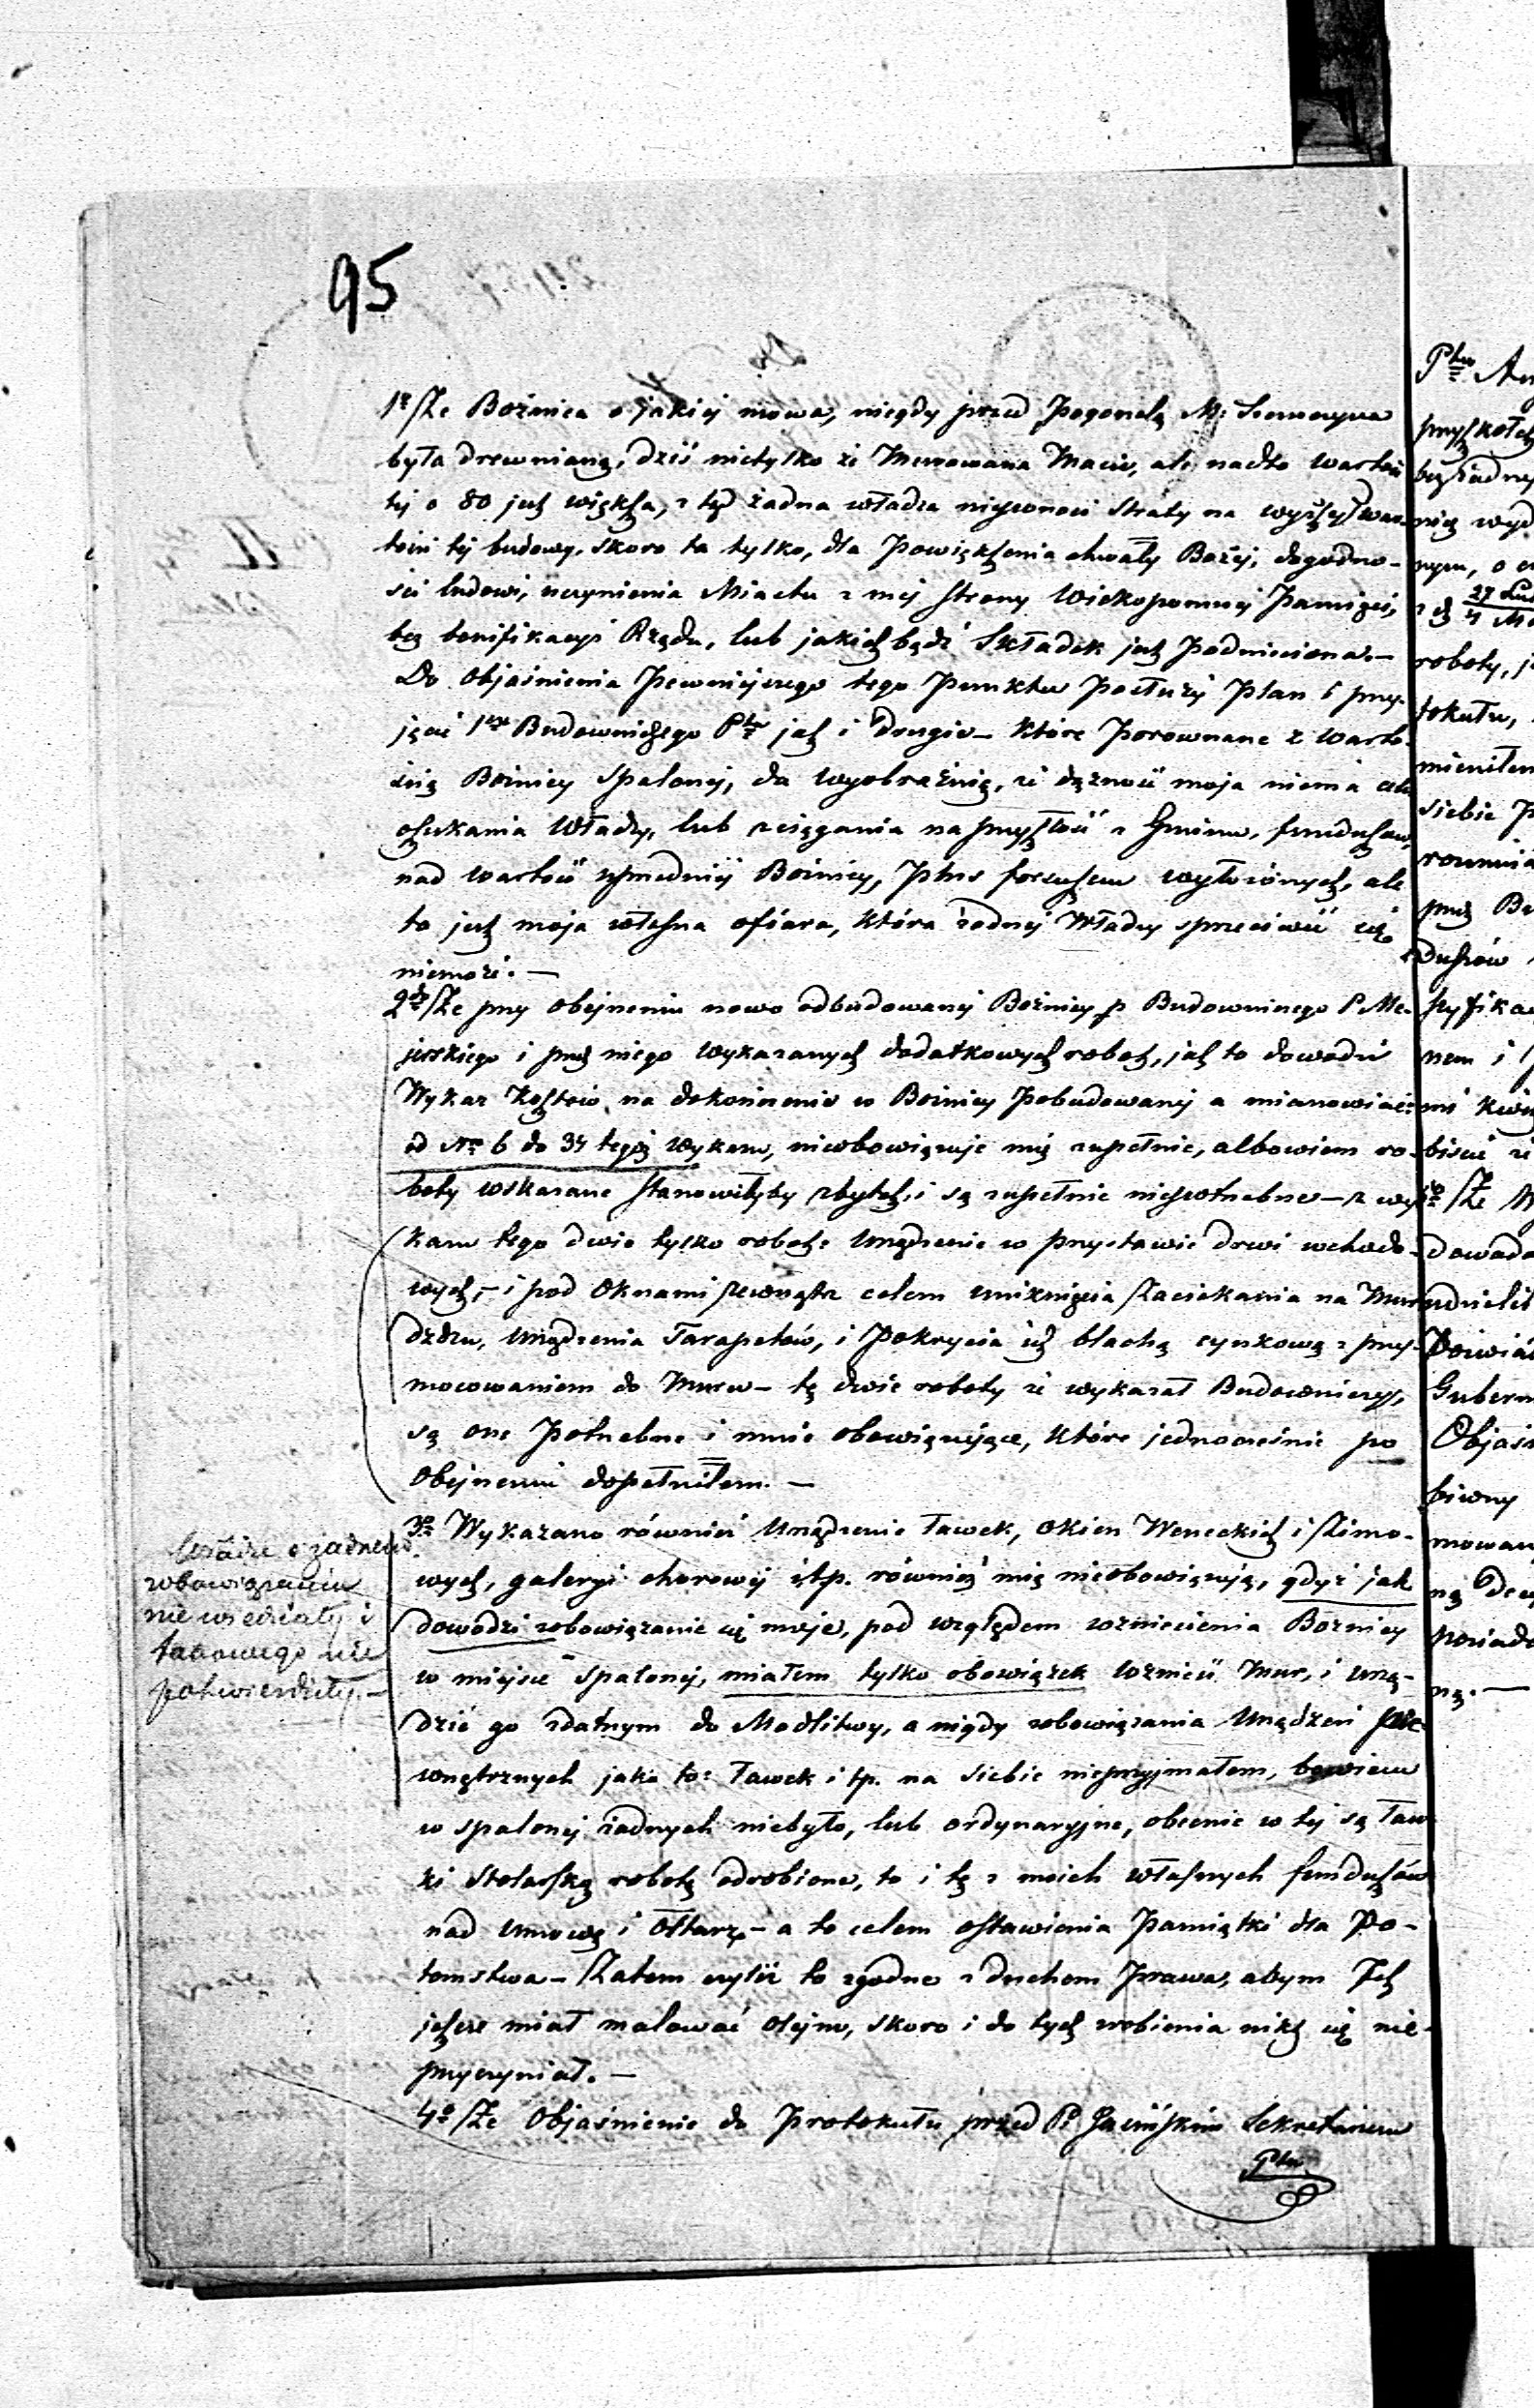 95
1o/ Że Bożnica o jakiej mowa, niegdy przed Pogorzelą M:
była drewnianą, dziś nietylko że Murowana Macie, ale nadto wartość
tej o 80 jest większa, z tąd żadna władza niepewności straty na wyższej war-
tości tej budowy, skoro ta tylko, dla Powiększenia chwały Bożej, dogodno-
ści ludowi, uczynienia Miastu z mej strony Wiekopomnej Pamięci,
bez bonifikacyi Rządu, lub jakichbądź Składek jest Podniesiona.—
Do Objaśnienia Pewniejszego tego Punktu Posłuży Plan i przy-
jęcie 1sze Budowniczego Ptu jak i drugie — które Porownane z warto-
ścią Bożnicy Spalonej, da wyobraźnią, że dążność moja niema celu
oszukania Władzy, lub zciągania na przyszłość z Gminu, funduszów,
nad wartość uprzedniej Bożnicy, Plus wyłożonych, ale
to jest moja własna ofiara, która żadnej Władzy sprzeciwić się
niemoże.—
2do/ Że przy obejrzeniu nowo odbudowanej Bożnicy p Budowniczego P Me-
jerskiego i przez niego wykazanych dodatkowych robot, jak to dowodzi
Wykaz Kosztów na dokończenie w Bożnicy Pobudowanej a mianowicie:
od No 6 do 34 tegoż Wykazu, nieobowięzuje mię zupełnie, albowiem ro-
boty wskazane stanowiłyby zbytek, i są zupełnie niepotrzebne — z wy-
kazu tego dwie tylko roboty: Urządzenie w przystawie drzwi wchodo-
wych, — i pod Oknami zewnątrz celem uniknięcia Zaciekania na Mur
dżdżu, Urządzenia Parapetów, i Pokrycia ich blachą cynkową z przy-
mocowaniem do Muru — tę dwie roboty że wykazał Budowniczy,
są one Potrzebne i mnie obowięzujące, które jednocześnie po
Obejrzeniu dopełniłem.—
3o Wykazano również Urządzenie Ławek, okien Weneckich i Zimo-
wych, galeryi chorowej itp. również mię nieobowięzują, gdyż jak
dowodzi zobowiązanie się moje, pod względem wzniecienia Bożnicy
w miejsce spalonej, miałem tylko obowiązek wznieść Mur, i urzą-
dzić go zdatnym do Modlitwy, a nigdy zobowiązania Urządzeń we-
wnętrznych jako to: Ławek i tp. na siebie nieprzyjmałem, bowiem
w spalonej żadnych niebyło, lub ordynaryjne, obecnie w tej są Ław-
ki Stolarską robotą odrobione, to i tę z moich własnych funduszów
nad Umowę i Ołtarz — a to celem ostawienia Pamiątki dla Po-
tomstwa — Zatem czyliż to zgodne z duchem Prawa, abym Ich
jeszcze miał malować olejno, skoro i do tych zrobienia nikt się nie-
przyczyniał.—
4o/ Że Objaśnienie do Protokułu przed P. Sekretarzem
Ptu
Władze o żadnem
zobowiązaniu
nie wiedziały i
takowego nie
potwierdziły.—
Ptu
bez żadnych
nich
27
roboty,
tokułu,
mieniłem
siebie
przez
nem i
Że
dowodz
udzielił
Gubern
Objaśn
mowan
ną.—